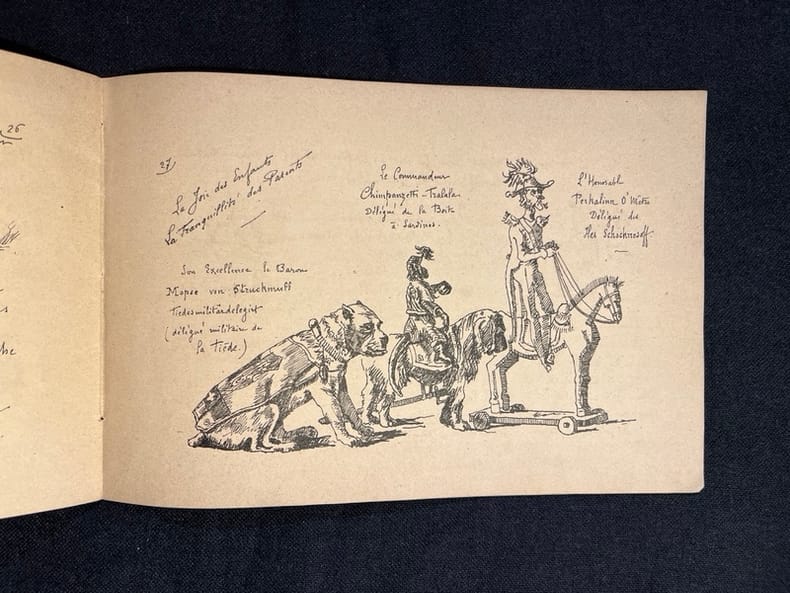 26
27
La Joie des Enfants
La Tranquillité des Parents
Son Excellence le Baron
Mopse von Struckmuff
Tiedesmilitärdelegirt
(délégué militaire de
la Tiède.)
Le Commandeur
Chimpanzetti-Tralala
Délégué de la Boîte
à Sardines.
L'Honorabl
Perkalinn O'Mètr
Délégué des
Iles Schocknosoff.
he